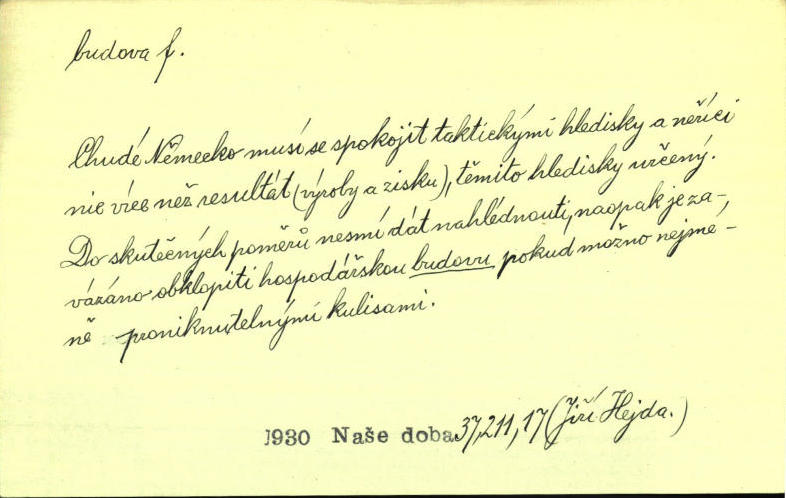 budova f.
Chudé Německo musí se spokojit taktickými hledisky a neříci
nic více než resultát (výroby a zisku), těmito hledisky určený.
Do skutečných poměrů nesmí dát nahlédnouti, naopak je za-
vázáno obklopiti hospodářskou budovu pokud možno nejmé-
ně proniknutelnými kulisami.
1930 Naše doba 37, 211, 17 (Jiří Hejda.)